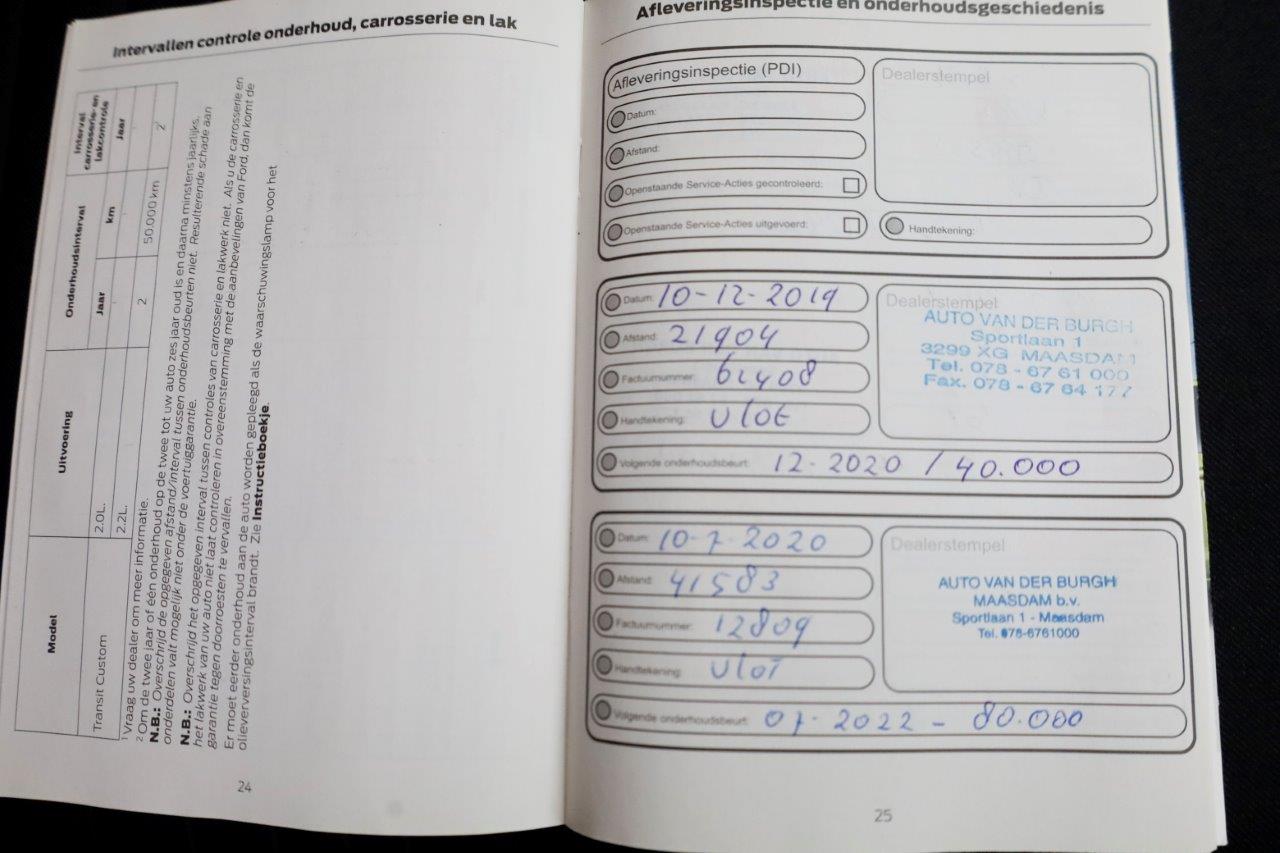 Intervallen controle onderhoud, carrosserie en lak
Model
Uitvoering
Onderhoudsinterval
Interval carrosserie- en lakcontrole
Jaar
km
Jaar
Transit Custom
2.0L.
2.2L.
2
50.000 km
2
¹ Vraag uw dealer om meer informatie.
² Om de twee jaar of één onderhoud op de twee tot uw auto zes jaar oud is en daarna minstens jaarlijks.
N.B.: Overschrijd de opgegeven afstand/interval tussen onderhoudsbeurten niet. Resulterende schade aan
onderdelen valt mogelijk niet onder de voertuiggarantie.
N.B.: Overschrijd het opgegeven interval tussen controles van carrosserie en lakwerk niet. Als u de carrosserie en
het lakwerk van uw auto niet laat controleren in overeenstemming met de aanbevelingen van Ford, dan komt de
garantie tegen doorroesten te vervallen.
Er moet eerder onderhoud aan de auto worden gepleegd als de waarschuwingslamp voor het
olieverversingsinterval brandt. Zie Instructieboekje.
24
Afleveringsinspectie en onderhoudsgeschiedenis
Afleveringsinspectie (PDI)
Dealerstempel
Datum:
Afstand:
Openstaande Service-Acties gecontroleerd:
Openstaande Service-Acties uitgevoerd:
Handtekening:
Datum: 10-12-2019
Afstand: 21904
Factuurnummer: 61408
Handtekening: Vlot
Volgende onderhoudsbeurt: 12-2020 / 40.000
Dealerstempel
AUTO VAN DER BURGH
Sportlaan 1
3299 XG MAASDAM
Tel. 078 - 67 61 000
Fax. 078 - 67 64 177
Datum: 10-7-2020
Afstand: 41583
Factuurnummer: 12809
Handtekening: Vlot
Volgende onderhoudsbeurt: 07-2022 - 80.000
Dealerstempel
AUTO VAN DER BURGH
MAASDAM b.v.
Sportlaan 1 - Maasdam
Tel. 078-6761000
25